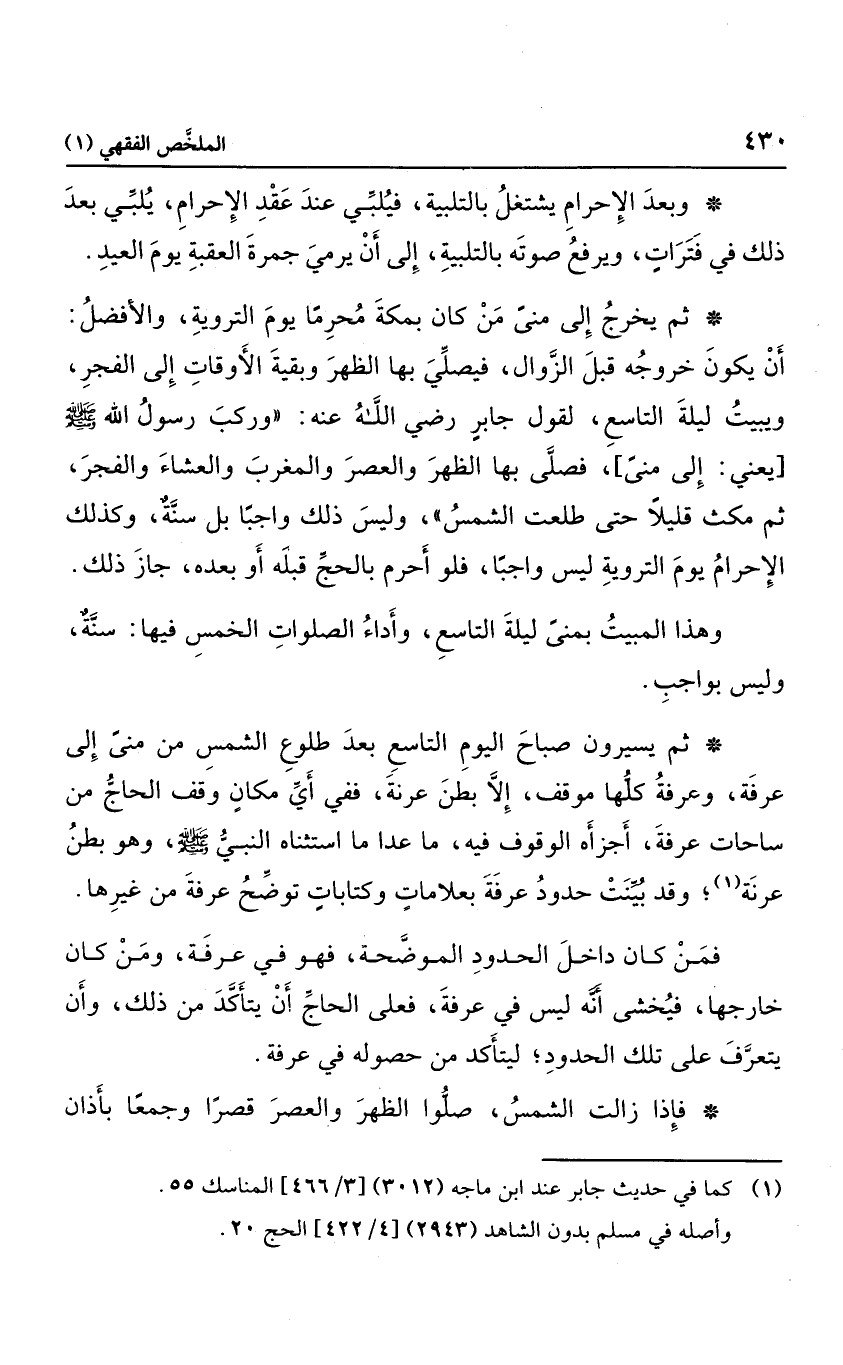 ٤٣٠
الملخَّص الفقهي (١)
* وبعدَ الإحرامِ يشتغلُ بالتلبية، فيُلبِّي عندَ عَقْدِ الإحرامِ، يُلبِّي بعدَ
ذلك في فَتَرَاتٍ، ويرفعُ صوتَه بالتلبيةِ، إلى أَنْ يرميَ جمرةَ العقبةِ يومَ العيدِ.
* ثم يخرجُ إلى منىً مَنْ كان بمكةَ مُحرِمًا يومَ الترويةِ، والأفضلُ:
أَنْ يكونَ خروجُه قبلَ الزَّوال، فيصلِّيَ بها الظهرَ وبقيةَ الأَوقاتِ إلى الفجرِ،
ويبيتُ ليلةَ التاسعِ، لقول جابرٍ رضي اللَّهُ عنه: «وركبَ رسولُ الله ﷺ
[يعني: إلى منىً]، فصلَّى بها الظهرَ والعصرَ والمغربَ والعشاءَ والفجرَ،
ثم مكث قليلاً حتى طلعت الشمسُ»، وليسَ ذلك واجبًا بل سنَّةٌ، وكذلك
الإحرامُ يومَ الترويةِ ليس واجبًا، فلو أَحرم بالحجِّ قبلَه أَو بعده، جازَ ذلك.
وهذا المبيتُ بمنىً ليلةَ التاسعِ، وأَداءُ الصلواتِ الخمسِ فيها: سنَّةٌ،
وليس بواجبٍ.
* ثم يسيرون صباحَ اليومِ التاسعِ بعدَ طلوعِ الشمسِ من منىً إلى
عرفَة، وعرفةُ كلُّها موقف، إلَّا بطنَ عرنةَ، ففي أَيِّ مكانٍ وقف الحاجُّ من
ساحات عرفةَ، أَجزأَه الوقوف فيه، ما عدا ما استثناه النبيُّ ﷺ، وهو بطنُ
عرنَة(١)؛ وقد بُيِّنَتْ حدودُ عرفَةَ بعلاماتٍ وكتاباتٍ توضِّحُ عرفةَ من غيرِها.
فمَنْ كان داخلَ الحدودِ الموضَّحة، فهو في عرفَة، ومَنْ كان
خارجها، فيُخشى أَنَّه ليس في عرفةَ، فعلى الحاجِّ أَنْ يتأَكَّدَ من ذلك، وأَن
يتعرَّفَ على تلك الحدودِ؛ ليتأَكد من حصوله في عرفة.
* فإذا زالت الشمسُ، صلُّوا الظهرَ والعصرَ قصرًا وجمعًا بأَذان
(١) كما في حديث جابر عند ابن ماجه (٣٠١٢) [٤٦٦/٣] المناسك ٥٥.
وأصله في مسلم بدون الشاهد (٢٩٤٣) [٤٢٢/٤] الحج ٢٠.